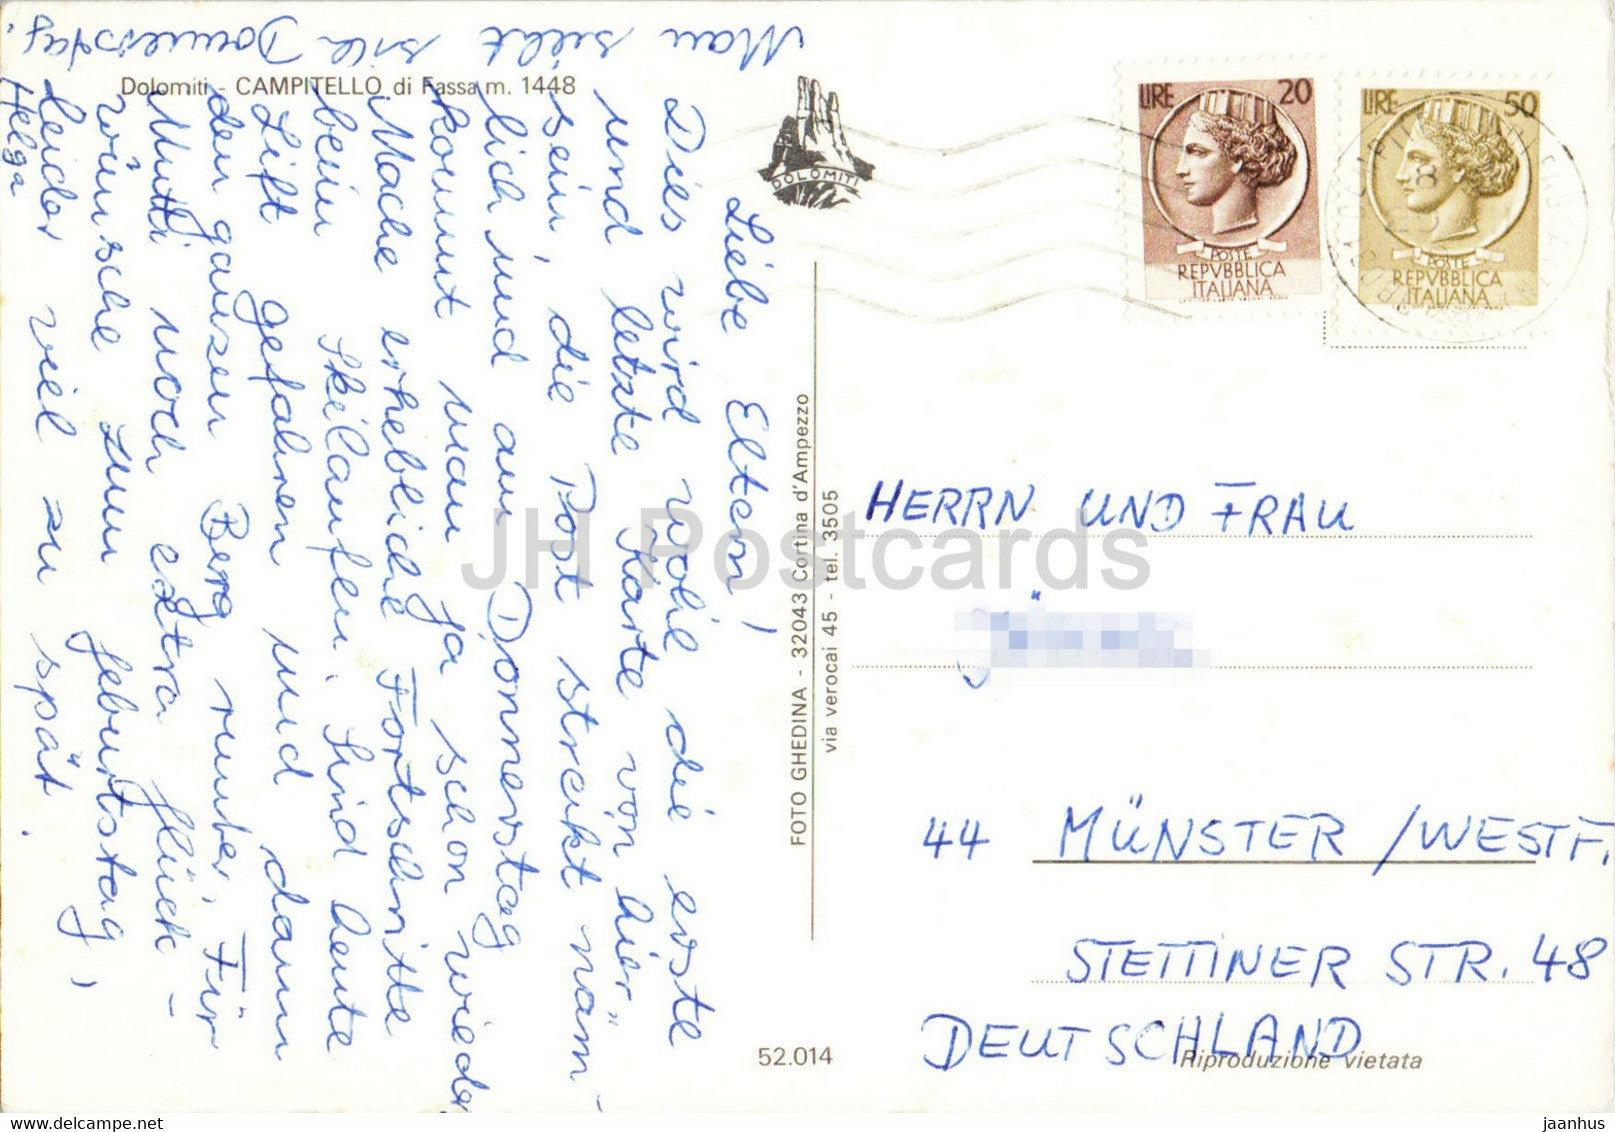 Man sieht sich Donnerstag.
Dolomiti - CAMPITELLO di Fassa m. 1448
Liebe Eltern!
Dies wird wohl die erste
und letzte Karte von hier
sein, die Post streikt näm-
lich und am Donnerstag
kommt man ja schon wieder
Mache erhebliche Fortschritte
beim Skilaufen. Sind heute
Lift gefahren und dann
den ganzen Berg runter. Für
Mutti noch extra Glück-
wünsche zum Geburtstag,
leider viel zu spät.
Helga
DOLOMITI
LIRE 20
POSTE
REPVBBLICA
ITALIANA
LIRE 50
POSTE
REPVBBLICA
ITALIANA
FOTO GHEDINA - 32043 Cortina d'Ampezzo
via verocai 45 - tel. 3505
HERRN UND FRAU
44 MÜNSTER /WESTF.
STETTINER STR. 48
DEUTSCHLAND
52.014
Riproduzione vietata
JH Postcards
www.delcampe.net
jaanhus